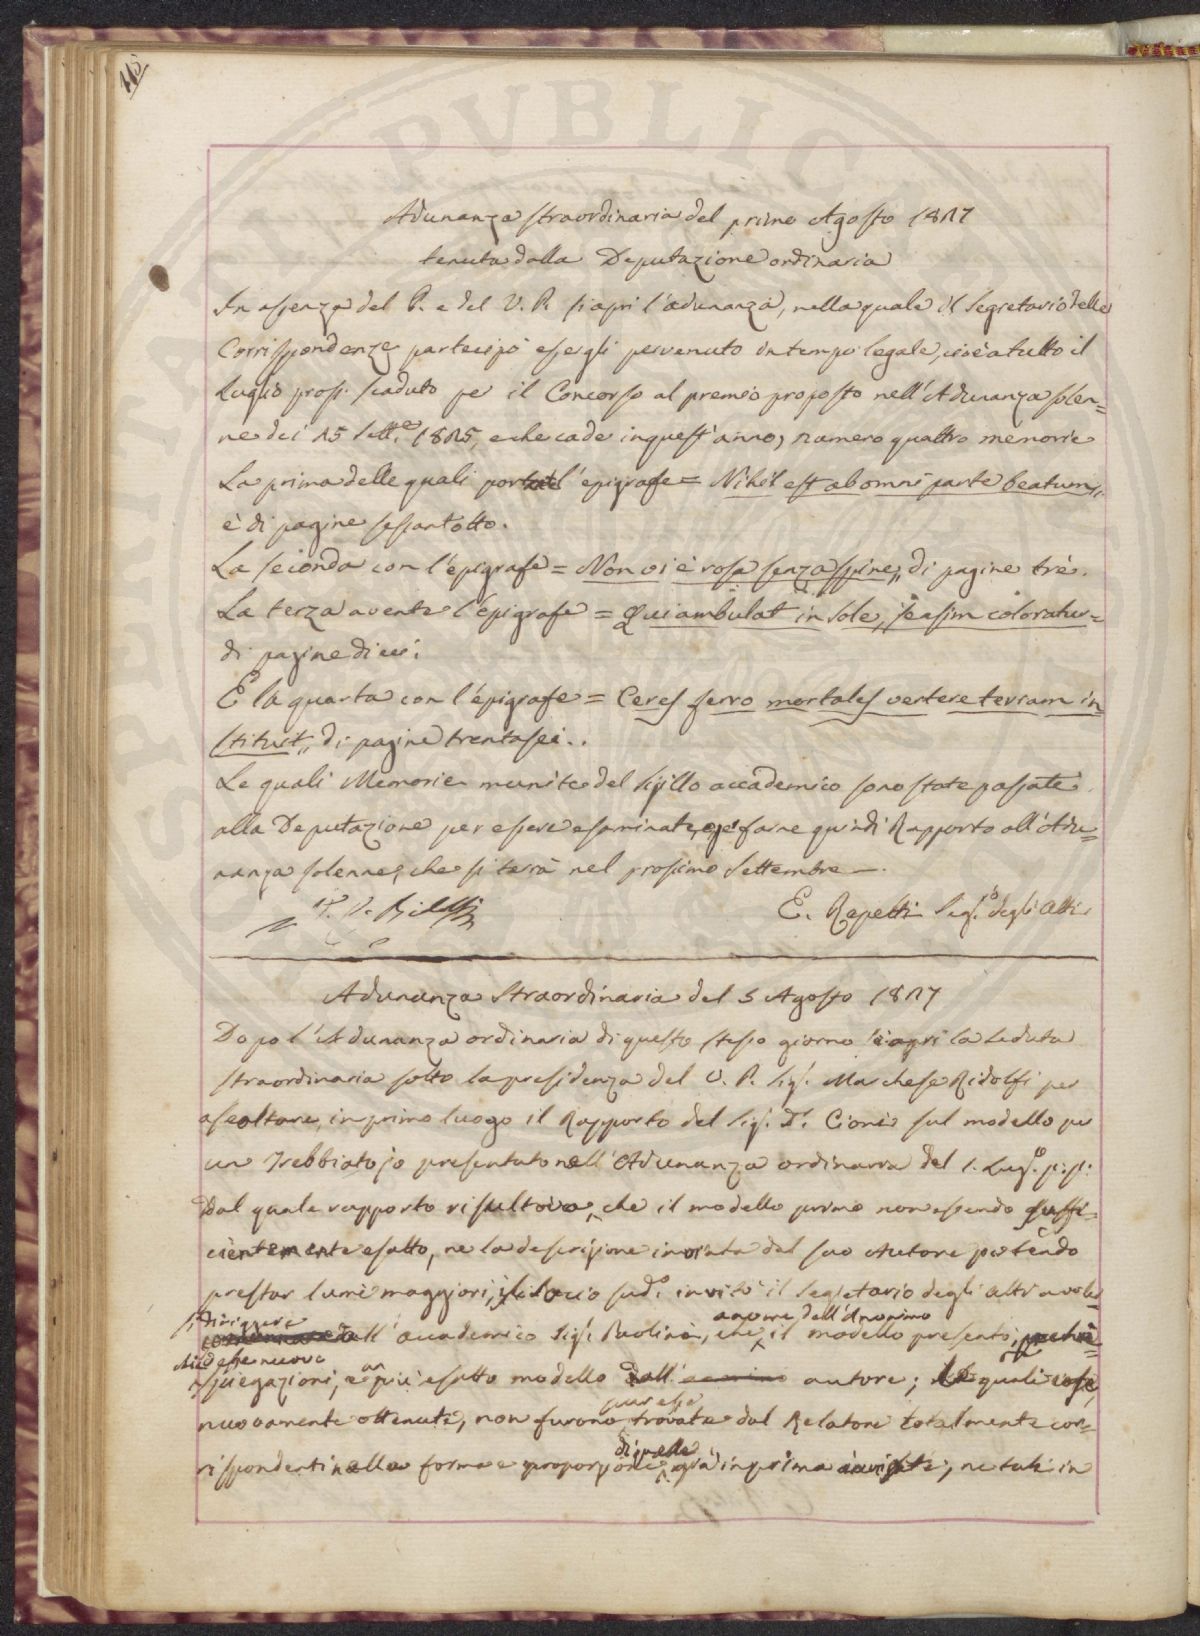 115
Adunanza straordinaria del primo Agosto 1817
tenuta dalla Deputazione ordinaria
In assenza del P. e del V. P. si aprì l'adunanza, nella quale il Segretario delle
Corrispondenze partecipò essergli pervenuto in tempo legale, cioè a tutto il
Luglio pross. scaduto per il Concorso al premio proposto nell'Adunanza solen=
ne dei 15 Sett.e 1815, e che cade in quest'anno, numero quattro memorie
La prima delle quali porta l'epigrafe = Nihil est ab omni parte beatum,,
è di pagine sessantotto.
La seconda con l'epigrafe = Non vi è rosa senza spine,, di pagine tre.
La terza avente l'epigrafe = Qui ambulat in sole, coloratur=
di pagine dieci.
E la quarta con l'epigrafe = Ceres ferro mortales vertere terram in=
stituit,, di pagine trentasei..
Le quali Memorie munite del sigillo accademico sono state passate
alla Deputazione per essere esaminate, e farne quindi Rapporto all'Adu=
nanza solenne, che si terrà nel prossimo Settembre —.
E. Repetti Seg.o degli Atti
Adunanza Straordinaria del 5 Agosto 1817
Dopo l'Adunanza ordinaria di questo stesso giorno si aprì la seduta
straordinaria sotto la presidenza del V. P. Sig. Marchese Ridolfi per
ascoltare in primo luogo il Rapporto del Sig. D. Cioni sul modello per
un Trebbiatojo presentato nell'Adunanza ordinaria del 1. Lug.o p.p.
Dal quale rapporto risultava, che il modello primo non essendo suffi=
cientemente esatto, ne la descrizione inviata dal suo Autore potendo
prestar lumi maggiori, il socio sud.o invitò il segretario degli atti a voler=
si dirigere all'accademico Sig. Paolini, che a nome dell'Anonimo il modello presentò,
chiedesse nuove
spiegazioni, e un più esatto modello dall' autore; le quali cose,
nuovamente ottenute, non furono pur esse trovate dal Relatore totalmente cor=
rispondenti nella forma e proporzione di quelle già in prima inviate; ne tali in